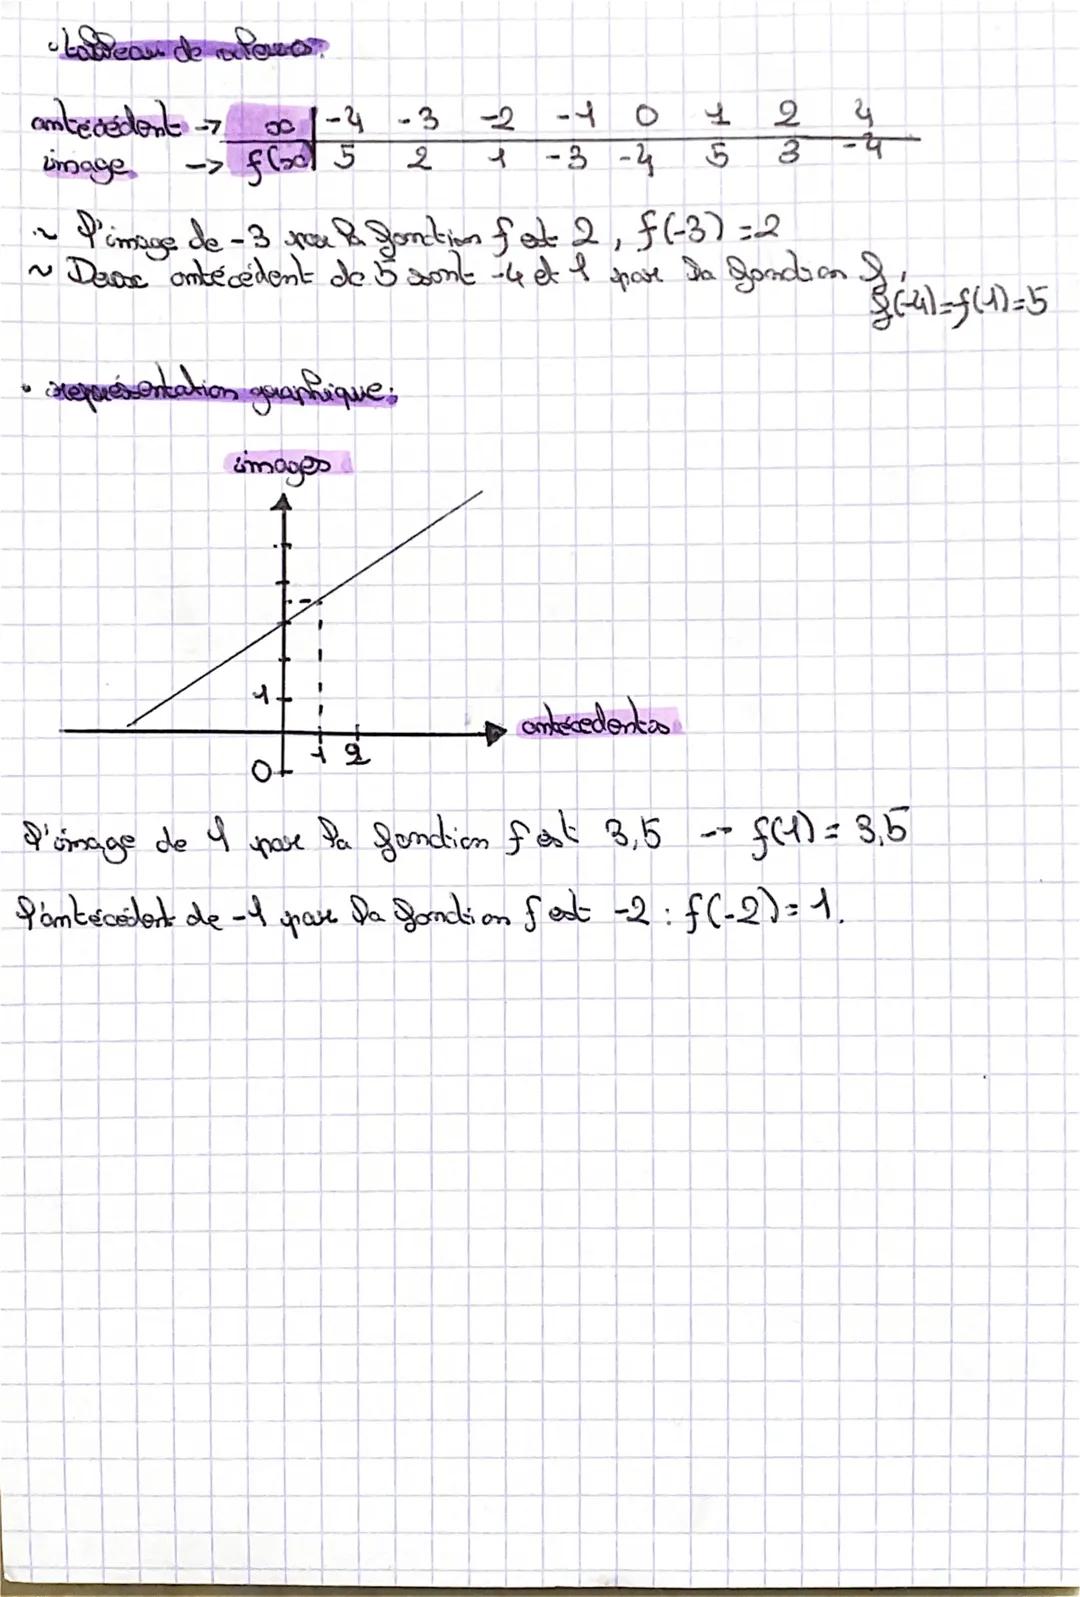 • tableau de valeurs:
antécédent -> x | -4 -3 -2 -1 0 1 2 4
image -> f(x) | 5 2 1 -3 -4 5 3 -4
~ l'image de -3 par la fonction f est 2, f(-3) = 2
~ Deux antécédent de 5 sont -4 et 1 par la fonction f,
f(-4)=f(1)=5
• représentation graphique:
images
1
antécédents
0 1 2
l'image de 1 par la fonction f est 3,5 -- f(1) = 3,5
l'antécédent de -1 par la fonction f est -2 : f(-2) = 1.